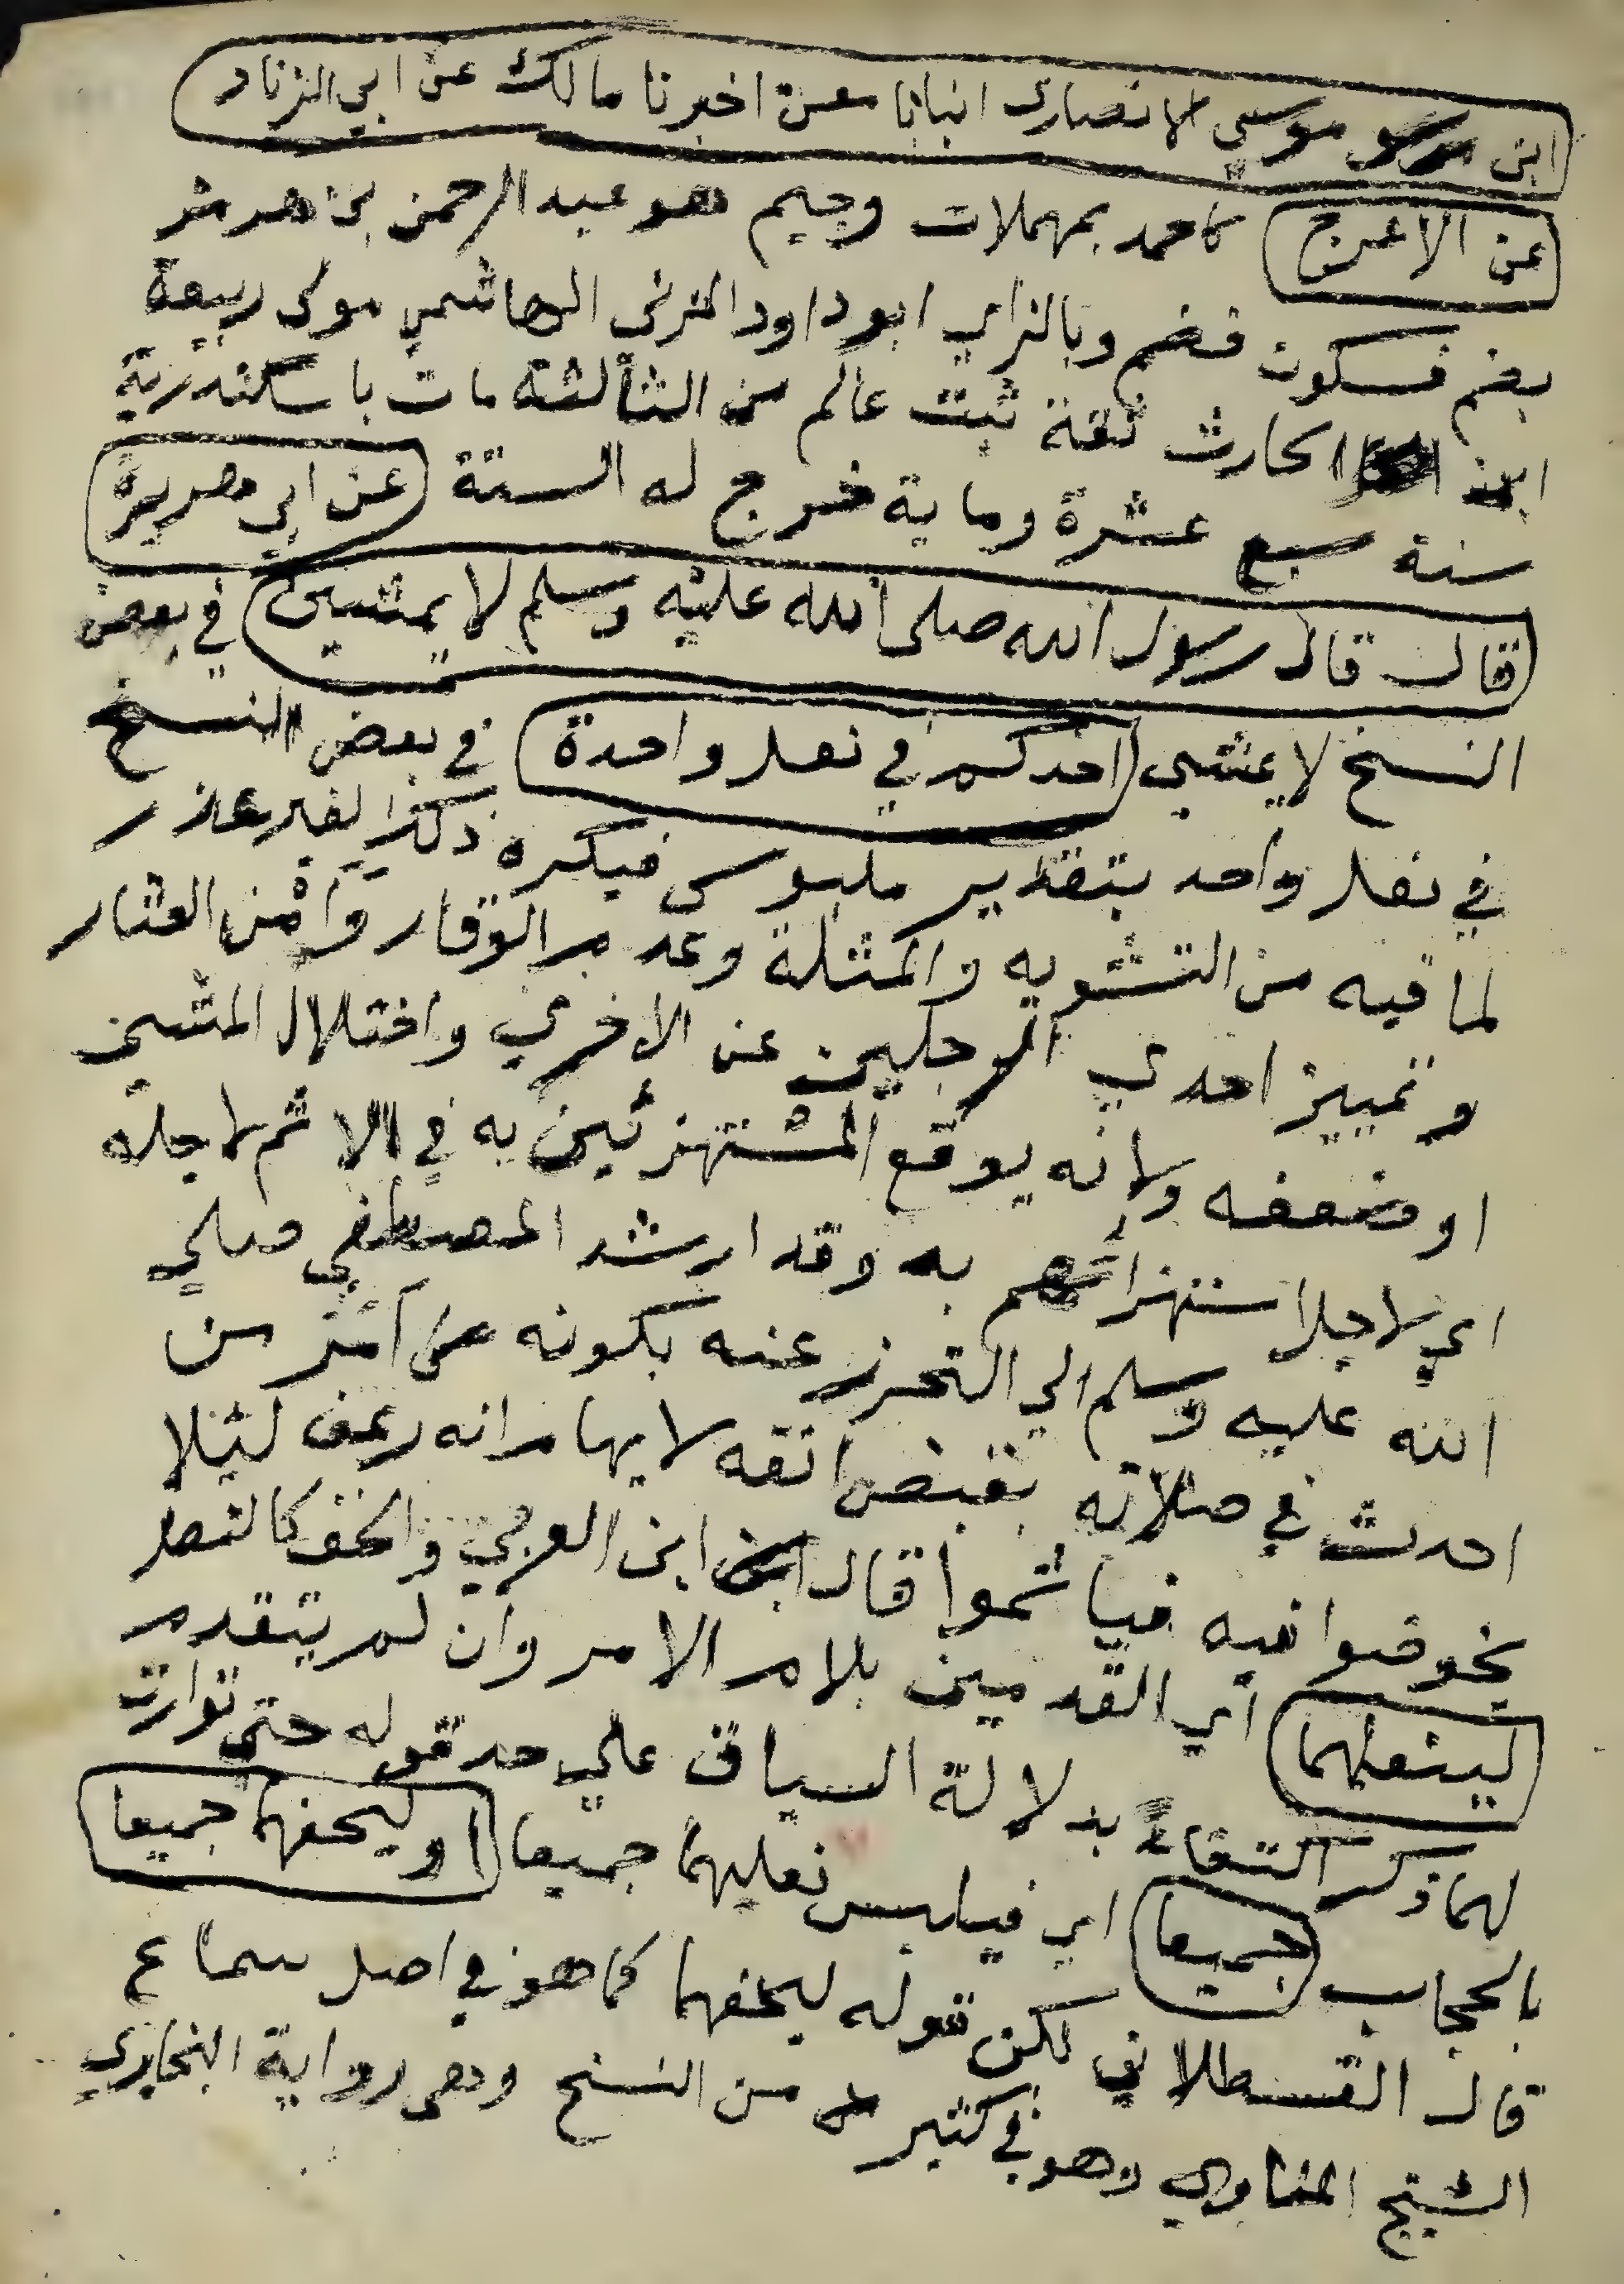 ابن موسي الانصاري انبانا معن اخبرنا مالك عن ابي الزناد
عن الاعرج كاحمد بمهملات وجيم هو عبد الرحمن بن هرمز
بضم فسكون فضم وبالزاي ابو داود المزني الهاشمي مولى ربيعة
ابن الحارث ثقة ثبت عالم من الثالثة مات باسكندرية
سنة سبع عشرة وماية خرج له الستة عن ابي هريرة
قال قال رسول الله صلى الله عليه وسلم لا يمشين في بعض
النسخ لا يمشي احدكم في نعل واحدة في بعض النسخ
في نعل واحد بتقدير ملبوس فيكره ذلك لغير عذر
لما فيه من التشويه والمثلة وعدم الوقار وامن العثار
وتمييز احدي الرجلين عن الاخري واختلال المشي
او ضعفه ولانه يوقع المستهزئين به في الاثم لاجله
اي لاجل استهزائهم به وقد ارشد المصطفي صلي
الله عليه وسلم الي التحرز عنه بكونه على من
احدث في صلاته بقبض انفه لايهام انه رعف لئلا
يخوضوا فيه فياثموا قال ابن العربي والخف كالنعل
لينعلهما اي القدمين بلام الامر وان لم يتقدم
لهما ذكر اكتفاء بدلالة السياق علي حد قوله حتى توارت
بالحجاب جميعا اي فيلبس نعليهما جميعا او ليحفهما جميعا
قال القسطلاني لكن قوله ليحفهما كما هو في اصل سماع
الشيخ المناوي وهو في كثير من النسخ وهى رواية البخاري